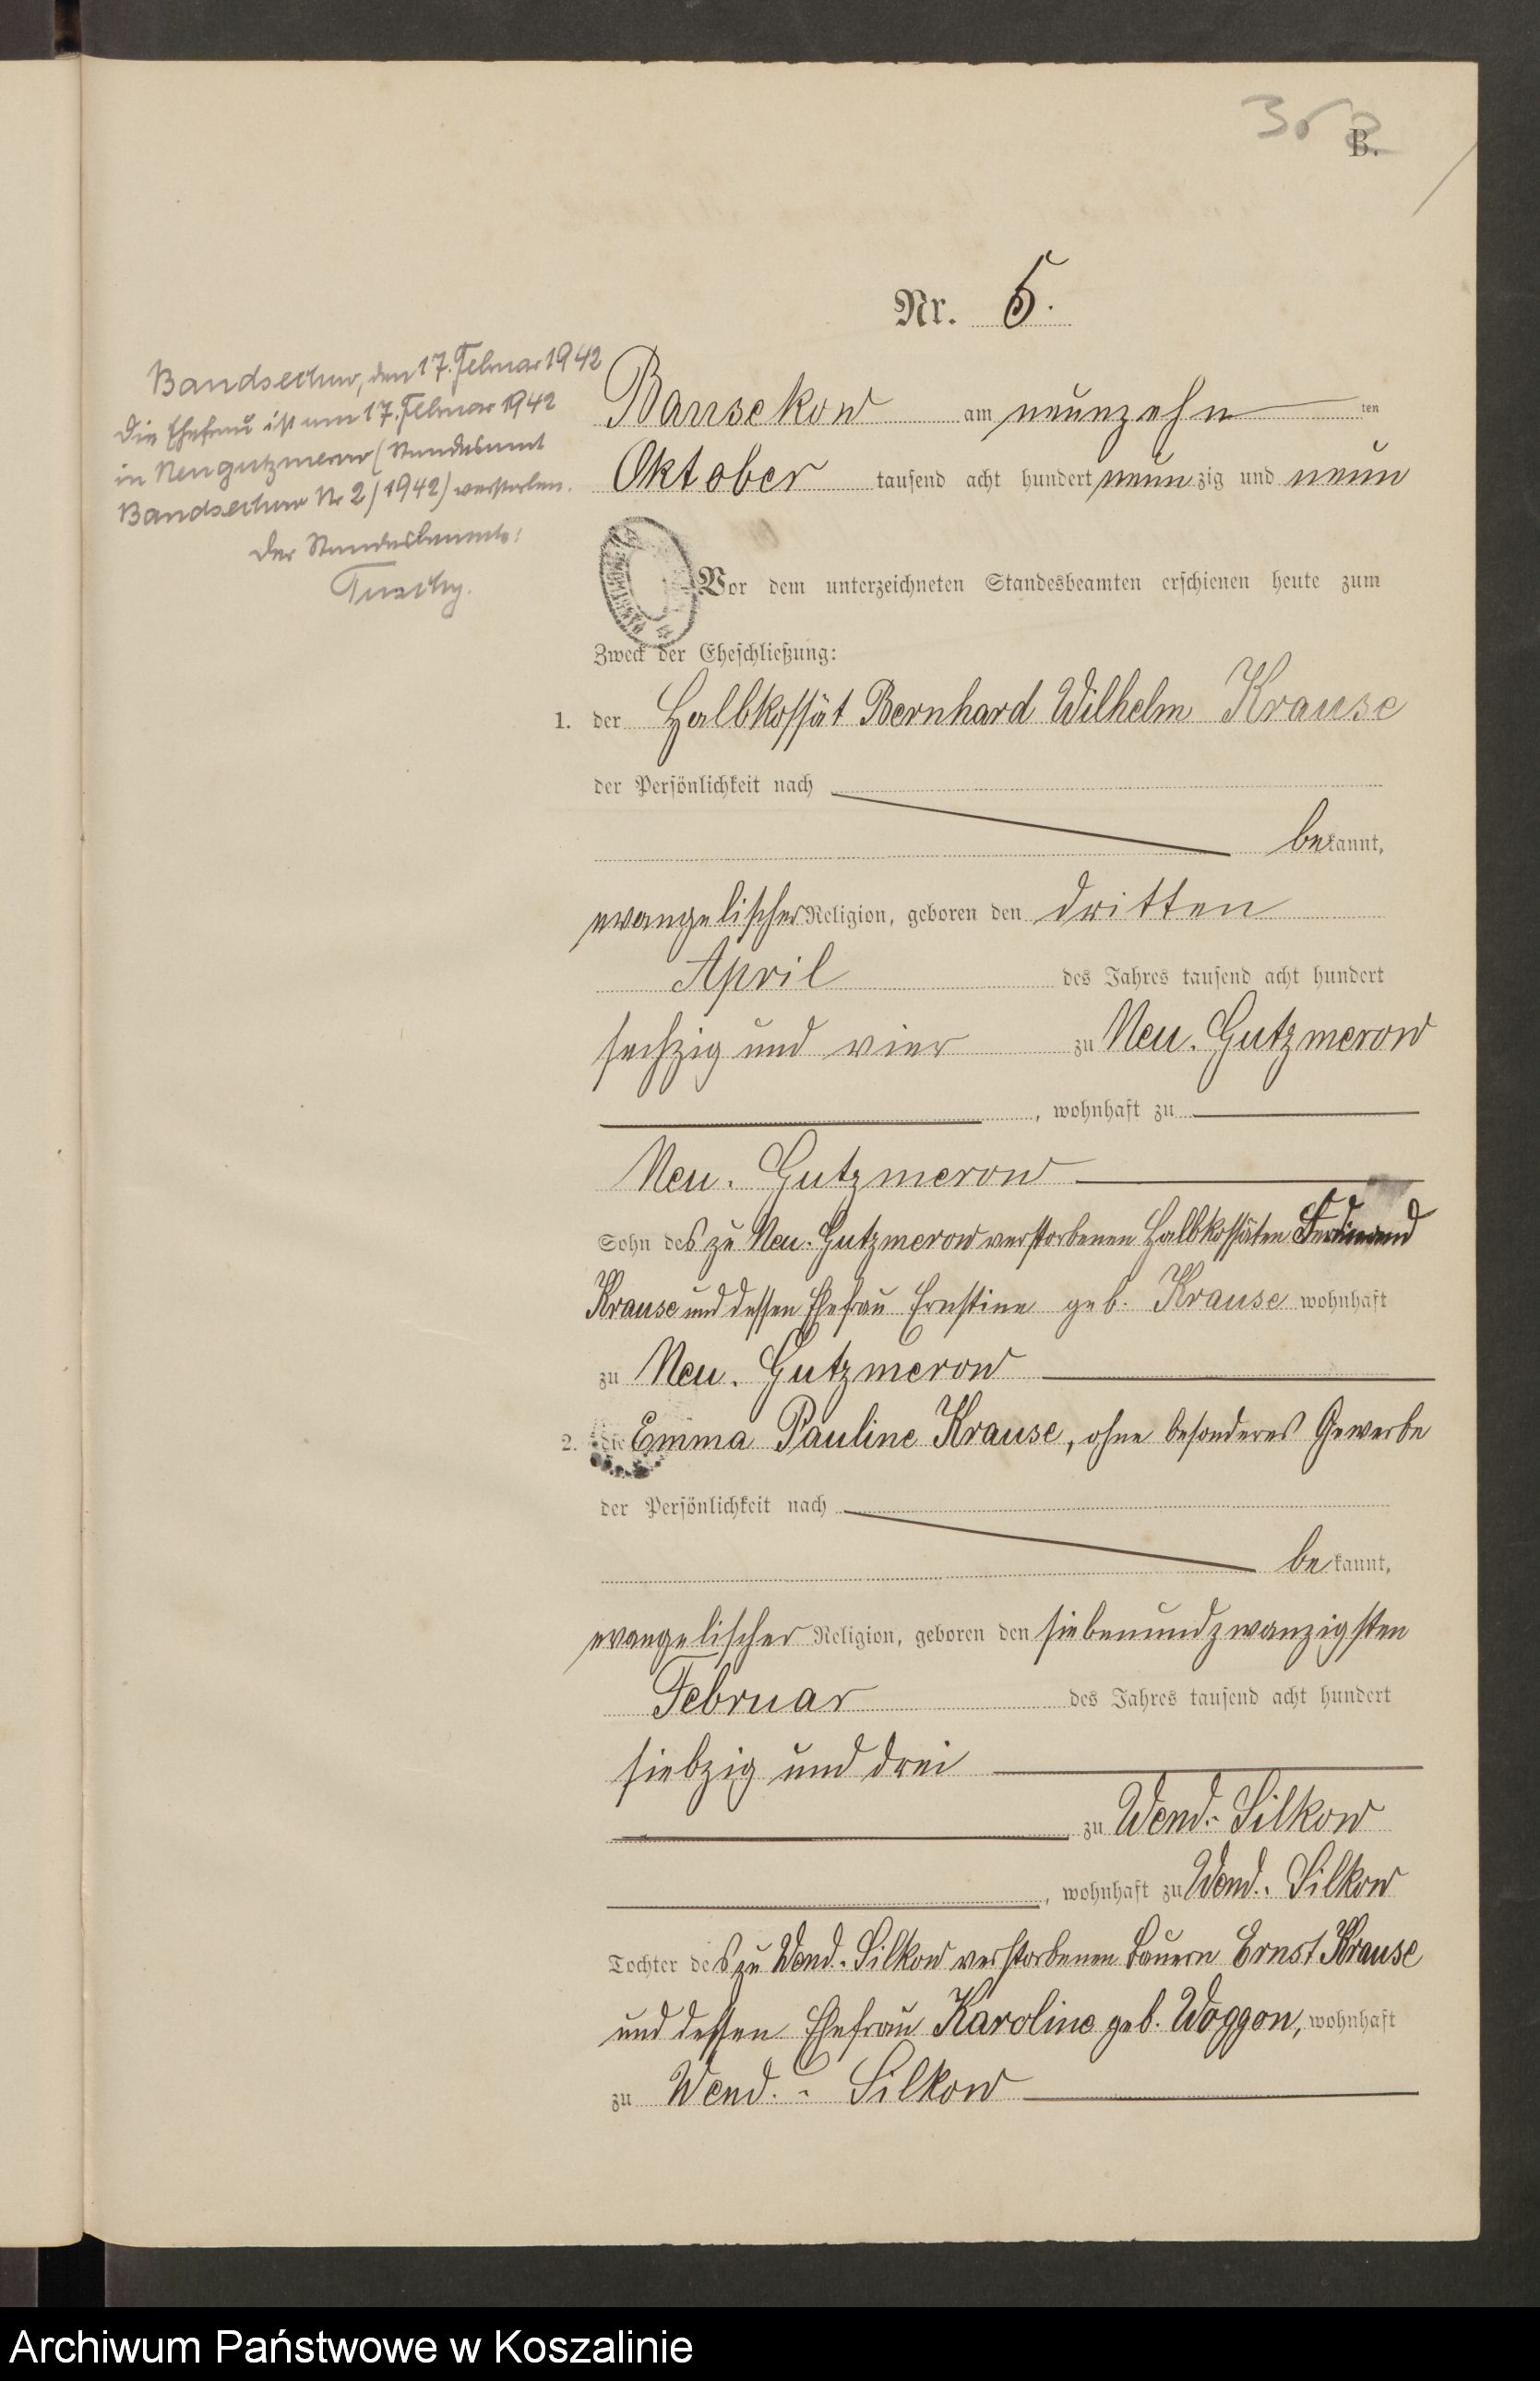 B.
Nr. 5.
Bandsechow, den 17. Februar 1942
Die Ehefrau ist am 17. Februar 1942
in Neugutzmerow (Standesamt
Bandsechow Nr 2/1942) verstorben.
Der Standesbeamte:
Bansekow am neunzehn ten
Oktober tausend acht hundert neunzig und neun
Vor dem unterzeichneten Standesbeamten erschienen heute zum
Zweck der Eheschließung:
1. der Halbkossät Bernhard Wilhelm Krause
der Persönlichkeit nach
bekannt,
evangelischer Religion, geboren den dritten
April des Jahres tausend acht hundert
sechzig und vier zu Neu-Gutzmerow
, wohnhaft zu
Neu-Gutzmerow
Sohn des zu Neu-Gutzmerow verstorbenen Halbkossäten Ferdinand
Krause und dessen Ehefrau Ernstine geb. Krause wohnhaft
zu Neu-Gutzmerow
2. die Emma Pauline Krause, ohne besonderes Gewerbe
der Persönlichkeit nach
bekannt,
evangelischer Religion, geboren den siebenundzwanzigsten
Februar des Jahres tausend acht hundert
siebzig und drei
zu Wend.-Silkow
, wohnhaft zu Wend.-Silkow
Tochter des zu Wend.-Silkow verstorbenen Bauern Ernst Krause
und dessen Ehefrau Karoline geb. Woggon, wohnhaft
zu Wend.-Silkow
Archiwum Państwowe w Koszalinie